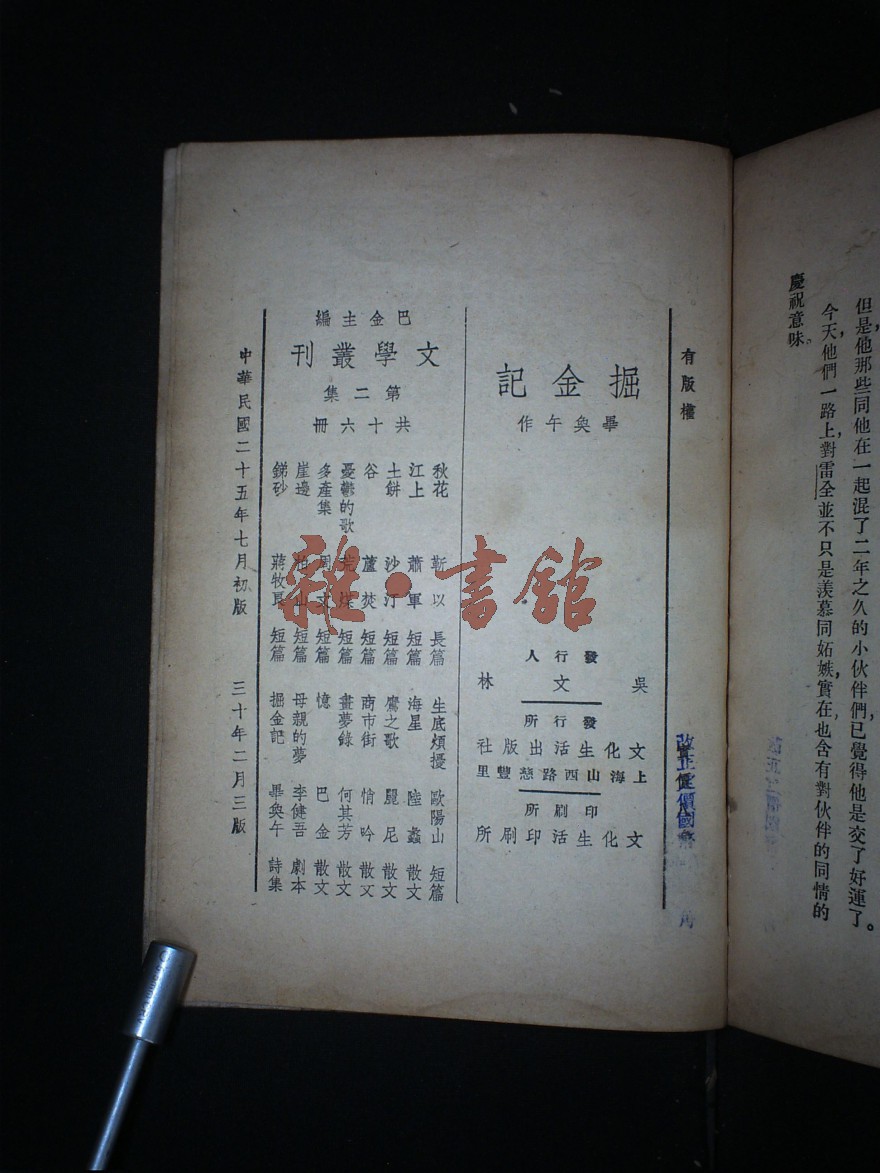 但是，他那些同他在一起混了二年之久的小伙伴們，已覺得他是交了好運了。
今天，他們一路上對雷全並不只是羨慕同妬嫉，實在也含有對伙伴的同情的
慶祝意味。
有版權
改正定價國幣
角
掘金記
畢奐午作
發行人
吳文林
發行所
文化生活出版社
上海山西路慈豐里
印刷所
文化生活印刷所
巴金主編
文學叢刊
第二集
共十六冊
秋花 靳以 長篇 生底煩擾 歐陽山 短篇
江上 蕭軍 短篇 海星 陸蠡 散文
土餅 沙汀 短篇 鷹之歌 麗尼 散文
谷 蘆焚 短篇 商市街 悄吟 散文
憂鬱的歌 荒煤 短篇 畫夢錄 何其芳 散文
多產集 周文 短篇 憶 巴金 散文
崖邊 柏山 短篇 母親的夢 李健吾 劇本
銻砂 蔣牧良 短篇 掘金記 畢奐午 詩集
中華民國二十五年七月初版 三十年二月三版
雜·書館